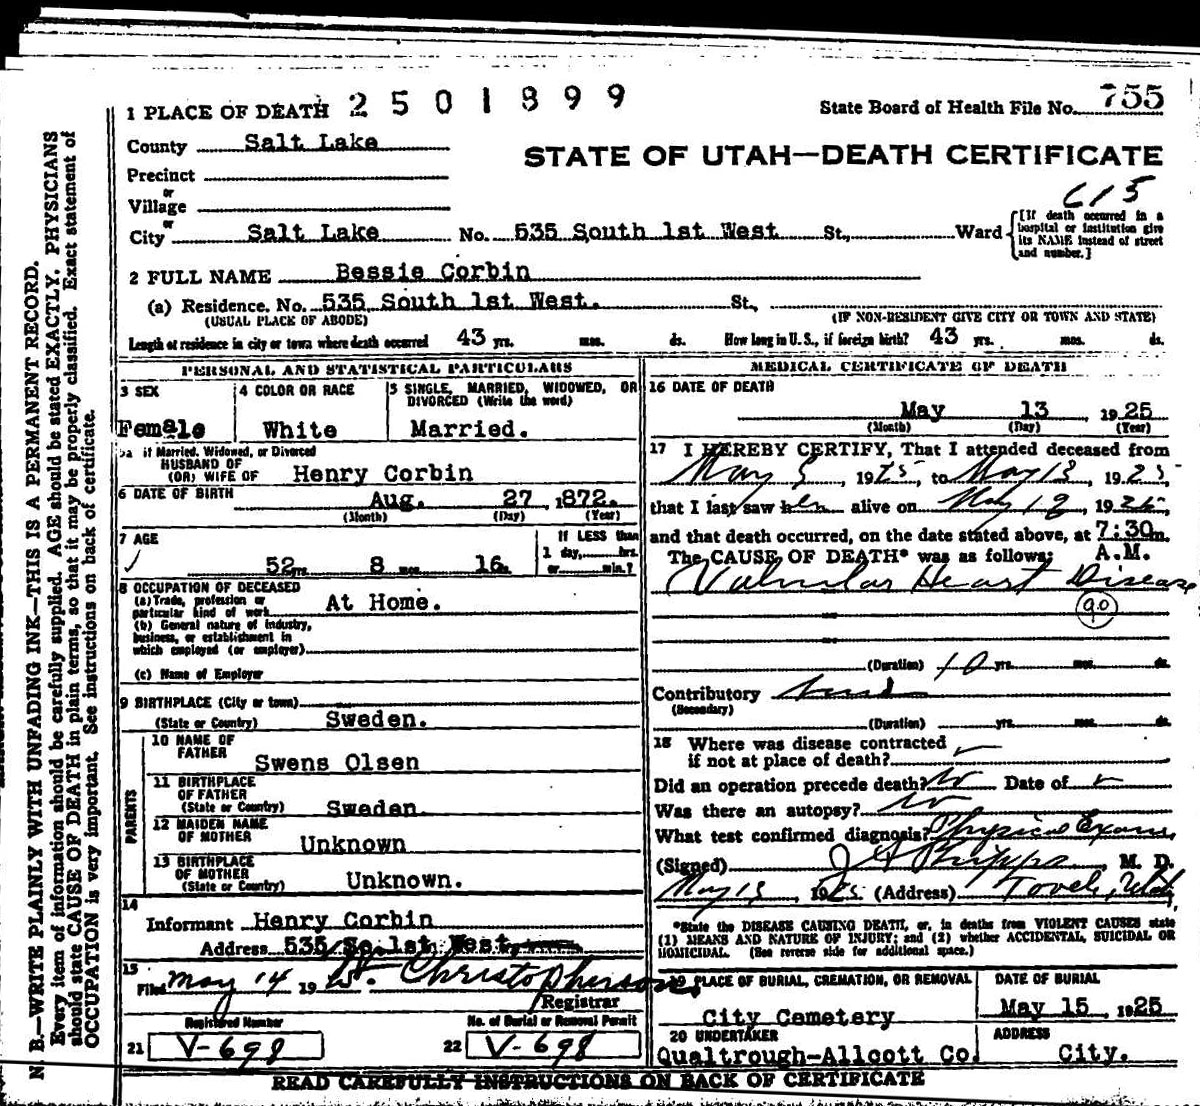 1 PLACE OF DEATH 2501899
State Board of Health File No. 755
County Salt Lake
STATE OF UTAH—DEATH CERTIFICATE
Precinct
or
Village
615
or
City Salt Lake No. 535 South 1st West St., Ward
[If death occurred in a hospital or institution give its NAME instead of street and number.]
2 FULL NAME Bessie Corbin
(a) Residence. No. 535 South 1st West. St.,
(USUAL PLACE OF ABODE) (IF NON-RESIDENT GIVE CITY OR TOWN AND STATE)
Length of residence in city or town where death occurred 43 yrs. mos. ds. How long in U. S., if foreign birth? 43 yrs. mos. ds.
PERSONAL AND STATISTICAL PARTICULARS
3 SEX
Female
4 COLOR OR RACE
White
5 SINGLE, MARRIED, WIDOWED, OR
DIVORCED (Write the word)
Married.
5a if Married, Widowed, or Divorced
HUSBAND OF
(OR) WIFE OF Henry Corbin
6 DATE OF BIRTH Aug. 27, 1872.
(Month) (Day) (Year)
7 AGE
52 yrs 8 mos 16 ds.
If LESS than
1 day, hrs.
or min.?
8 OCCUPATION OF DECEASED
(a) Trade, profession or
particular kind of work At Home.
(b) General nature of industry,
business, or establishment in
which employed (or employer)
(c) Name of Employer
9 BIRTHPLACE (City or town)
(State or Country) Sweden.
PARENTS
10 NAME OF
FATHER Swens Olsen
11 BIRTHPLACE
OF FATHER
(State or Country) Sweden.
12 MAIDEN NAME
OF MOTHER Unknown
13 BIRTHPLACE
OF MOTHER
(State or Country) Unknown.
14
Informant Henry Corbin
Address 535 So. 1st West,
15
Filed May 14 19 Christopherson
Registrar
Registered Number
21 V-698
No. of Burial or Removal Permit
22 V-698
MEDICAL CERTIFICATE OF DEATH
16 DATE OF DEATH
May 13 1925
(Month) (Day) (Year)
17 I HEREBY CERTIFY, That I attended deceased from
May 5, 1925, to May 13, 1925
that I last saw her alive on May 19
and that death occurred, on the date stated above, at 7:30 m.
The CAUSE OF DEATH* was as follows: A.M.
Valvular Heart Disease
90
(Duration) 10 yrs. mos. ds.
Contributory
(Secondary)
(Duration) yrs. mos. ds.
18 Where was disease contracted
if not at place of death?
Did an operation precede death? No Date of
Was there an autopsy? No
What test confirmed diagnosis? Physical Exam,
(Signed) J A Phipps, M. D.
May 13, 1925 (Address)
*State the DISEASE CAUSING DEATH, or, in deaths from VIOLENT CAUSES state
(1) MEANS AND NATURE OF INJURY; and (2) whether ACCIDENTAL, SUICIDAL OR
HOMICIDAL. (See reverse side for additional space.)
19 PLACE OF BURIAL, CREMATION, OR REMOVAL
City Cemetery
DATE OF BURIAL
May 15, 1925
20 UNDERTAKER
Qualtrough-Allcott Co.
ADDRESS
City.
READ CAREFULLY INSTRUCTIONS ON BACK OF CERTIFICATE
N. B.—WRITE PLAINLY WITH UNFADING INK—THIS IS A PERMANENT RECORD.
Every item of information should be carefully supplied. AGE should be stated EXACTLY. PHYSICIANS
should state CAUSE OF DEATH in plain terms, so that it may be properly classified. Exact statement of
OCCUPATION is very important. See instructions on back of certificate.